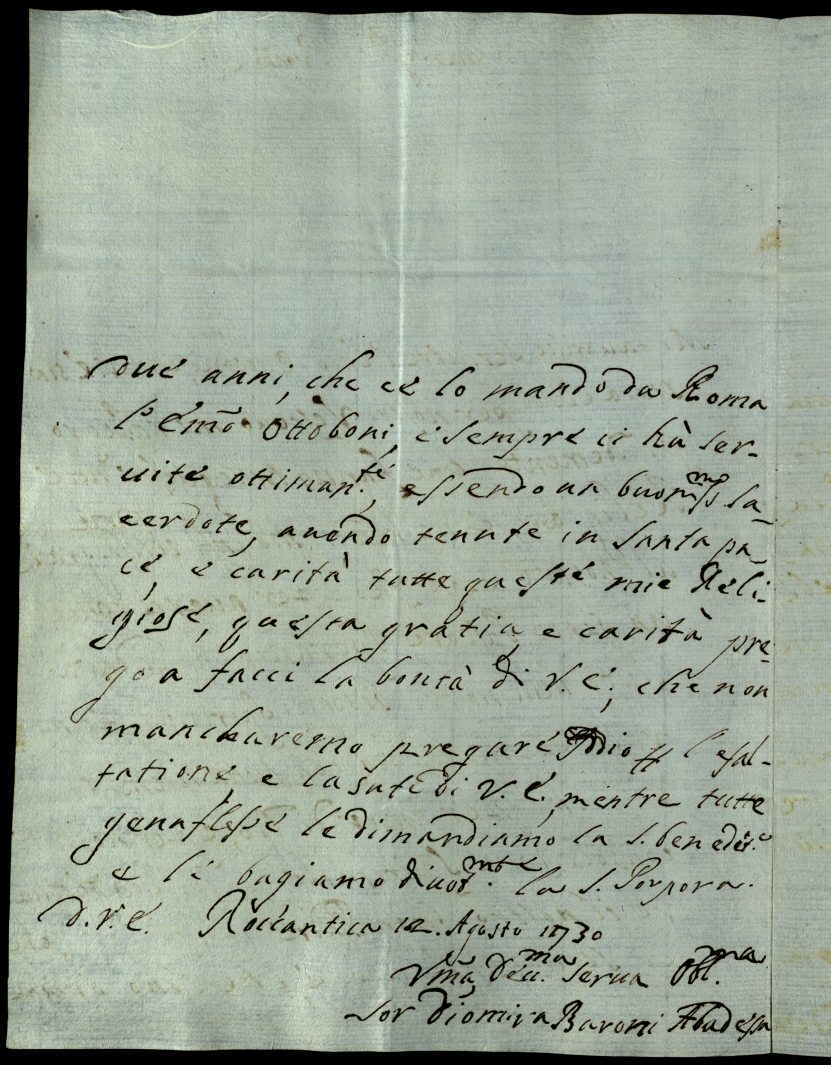 due anni, che ce lo mandò da Roma
l'Em̃o Ottoboni, e sempre ci hà ser-
uite ottimam.te, essendo un buoniss.mo sa-
cerdote, auendo tenute in santa pa-
ce, e carità tutte queste mie Reli-
giose, questa gratia, e carità pre-
go a facci la bontà di V. E., che non
mancharemo pregare Iddio p l'esal-
tatione, e la salute di V. E., mentre tutte
genuflesse le dimandiamo la S. bened.e
e le bagiamo diuot.mte la S. Porpora.
D. V. E. Roccantica 12. Agosto 1730
Vm̃a, Deu.ma Serua Obl.ma
Sor Diomira Baroni Abadessa